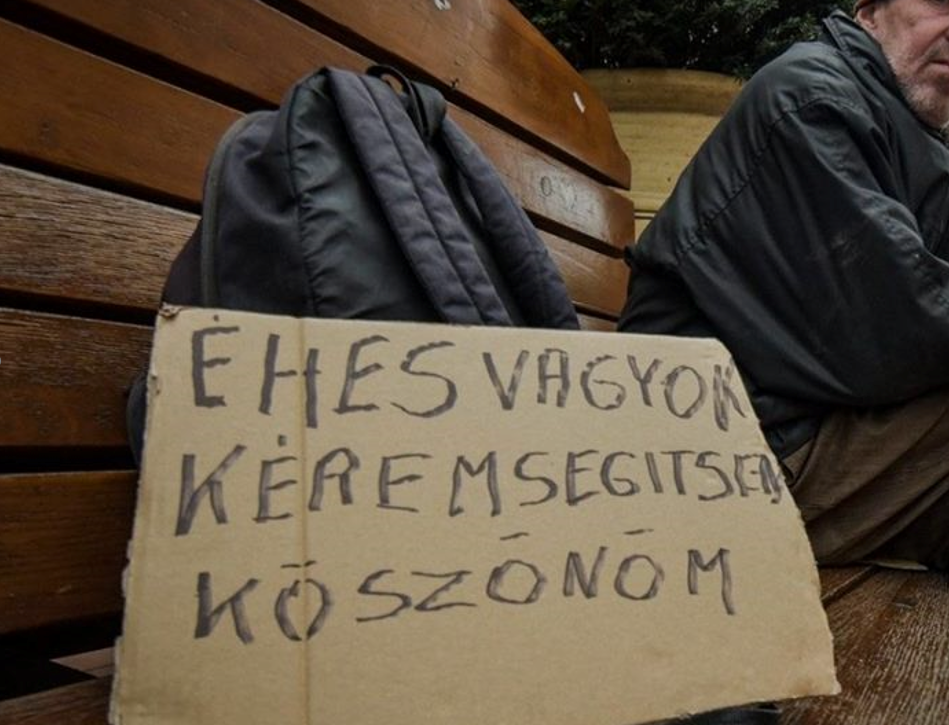 ÉHES VAGYOK
KÉREM SEGITSEN
KŌSZŌNŌM